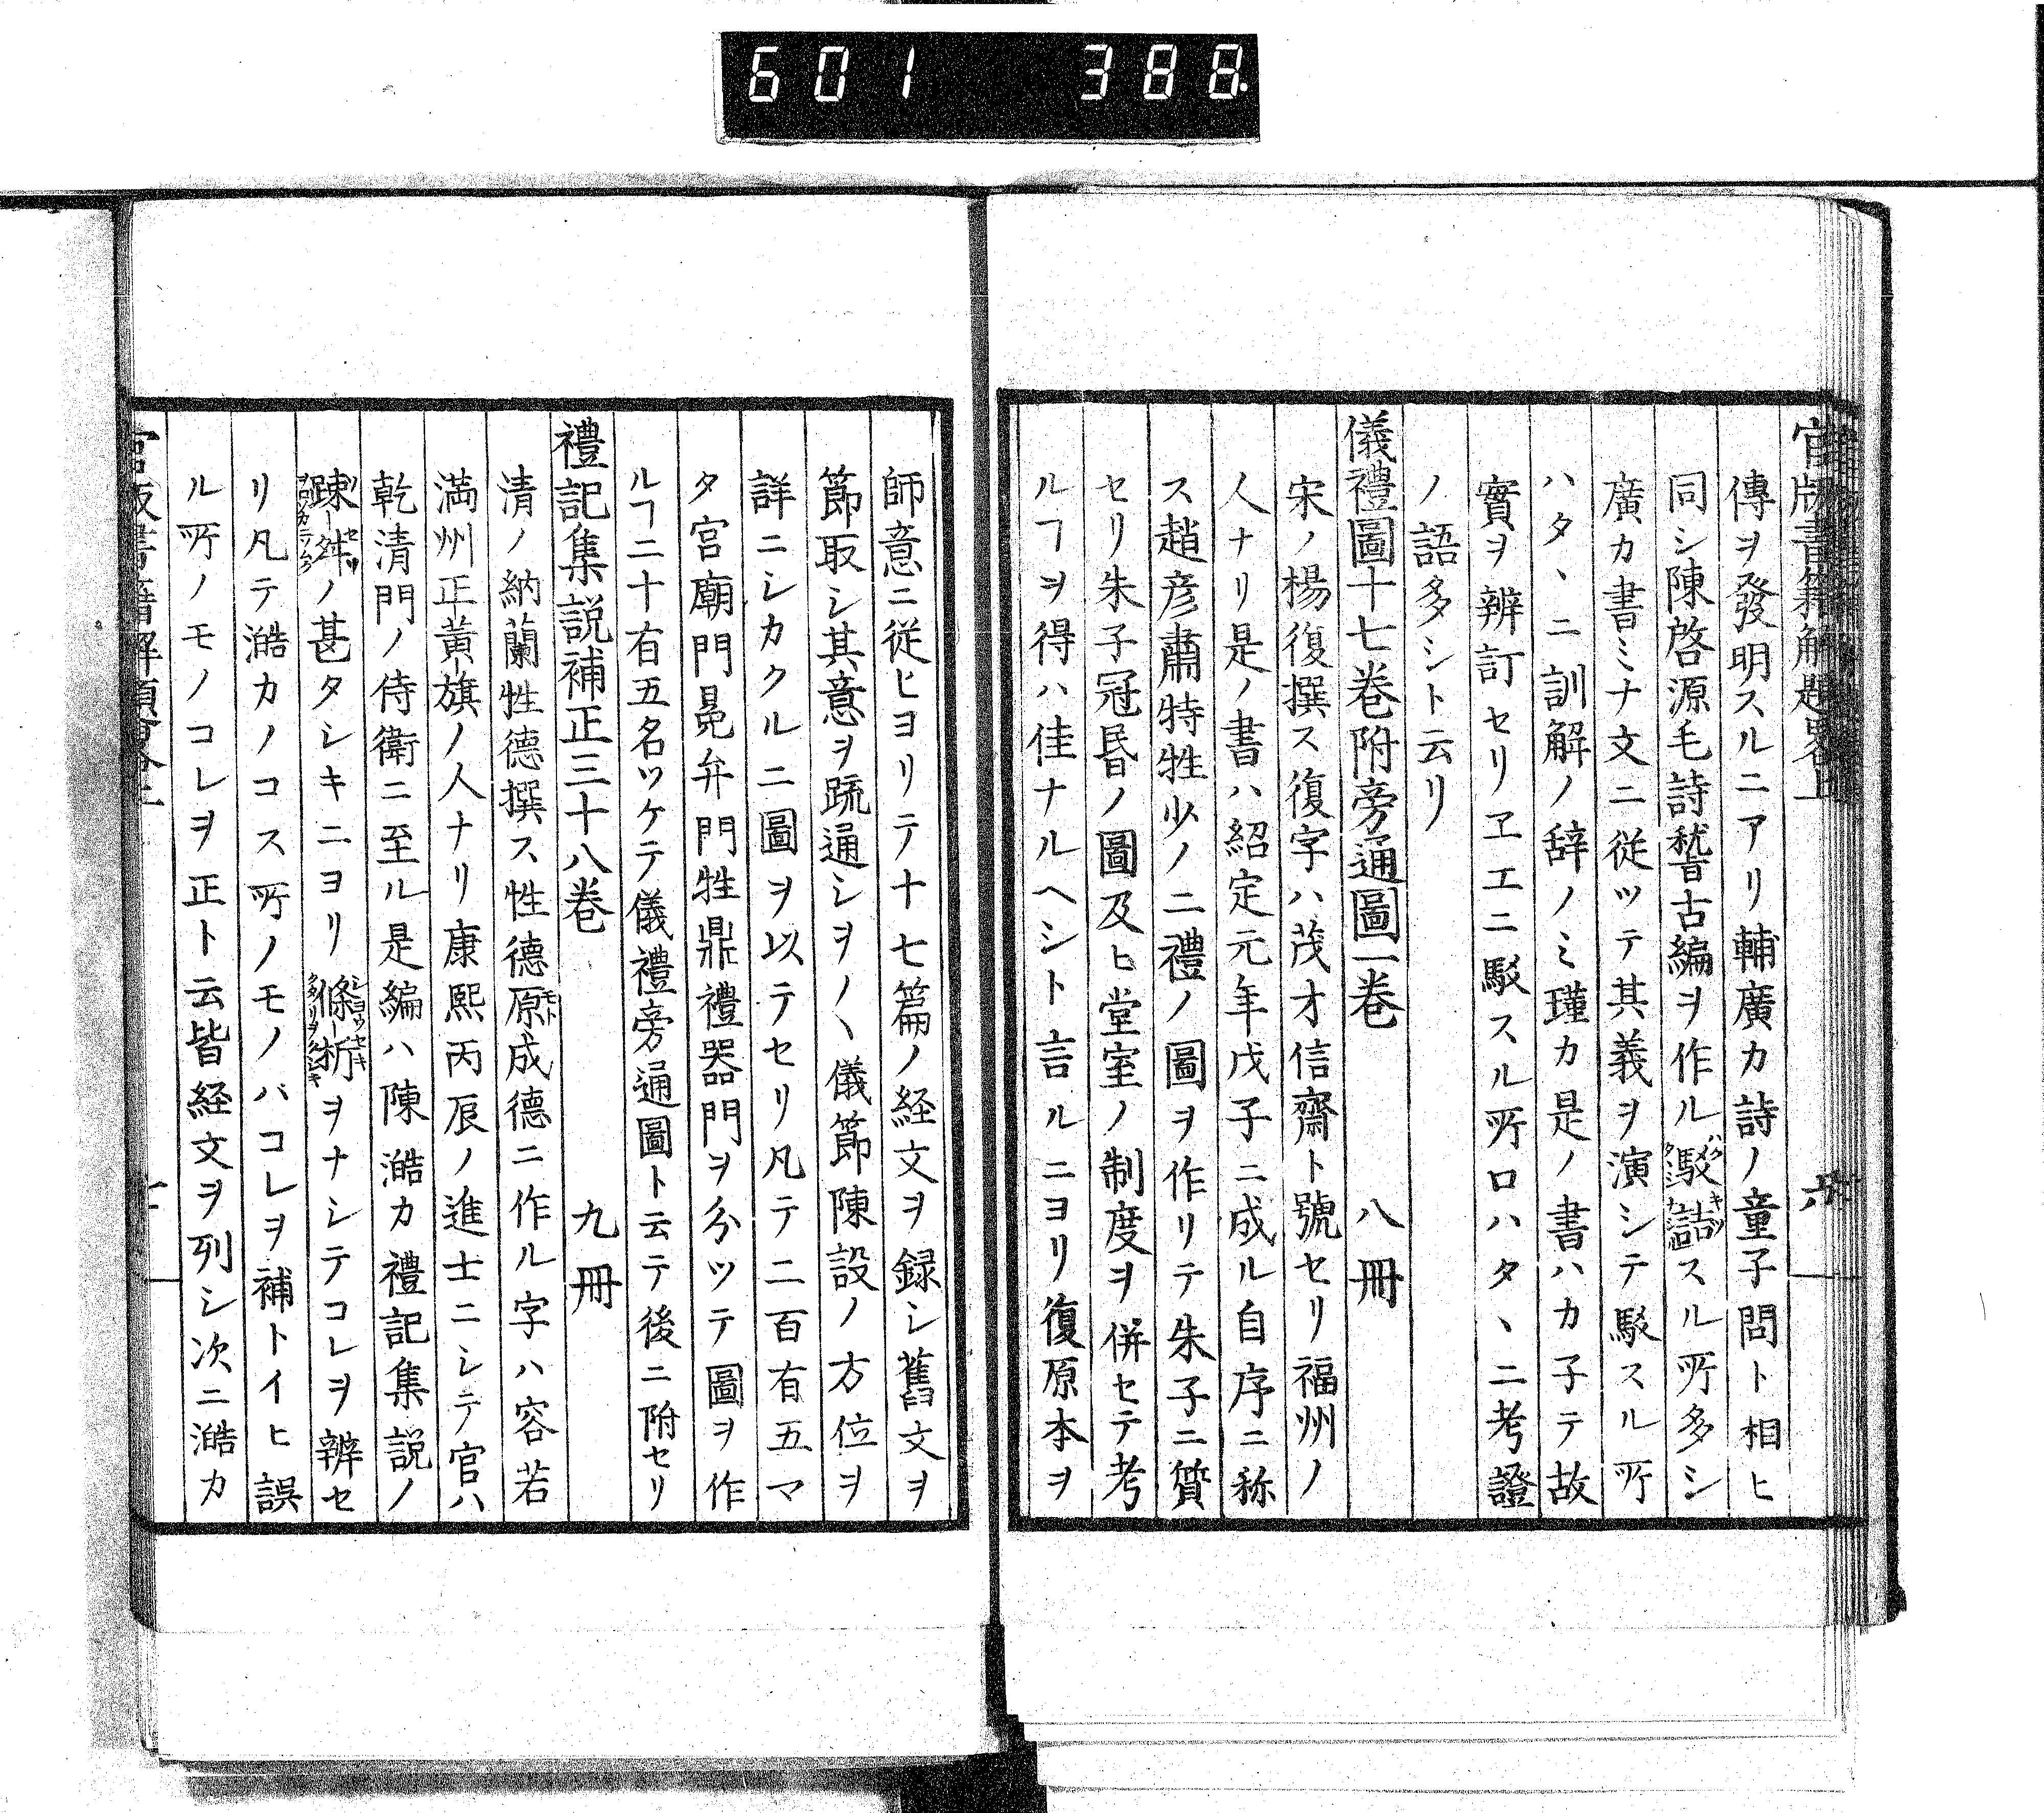 601 388
官版書籍解題畧上
六
傳ヲ發明スルニアリ輔廣カ詩ノ童子問ト相ヒ
同シ陳啓源毛詩稽古編ヲ作ル駁詰スル所多シ
廣カ書ミナ文ニ従ツテ其義ヲ演シテ駁スル所
ハタヽニ訓解ノ辞ノミ瑾カ是ノ書ハカ子テ故
實ヲ辨訂セリヱエニ駁スル所ロハタヽニ考證
ノ語多シト云リ
儀禮圖十七巻附旁通圖一巻 八冊
宋ノ楊復撰ス復字ハ茂才信齋ト號セリ福州ノ
人ナリ是ノ書ハ紹定元年戊子ニ成ル自序ニ称
ス趙彦肅特牲少ノ二禮ノ圖ヲ作リテ朱子ニ質
セリ朱子冠昏ノ圖及ヒ堂室ノ制度ヲ併セテ考
ルヿヲ得ハ佳ナルヘシト言ルニヨリ復原本ヲ
師意ニ従ヒヨリテ十七篇ノ経文ヲ録シ舊文ヲ
節取シ其意ヲ疏通シヲノ〱儀節陳設ノ方位ヲ
詳ニシカクルニ圖ヲ以テセリ凡テ二百有五マ
タ宮廟門冕弁門牲鼎禮器門ヲ分ツテ圖ヲ作
ルヿ二十有五名ツケテ儀禮旁通圖ト云テ後ニ附セリ
禮記集説補正三十八巻 九冊
清ノ納蘭性徳撰ス性徳原成徳ニ作ル字ハ容若
満州正黃旗ノ人ナリ康熙丙辰ノ進士ニシテ官ハ
乾清門ノ侍衛ニ至ル是編ハ陳澔カ禮記集説ノ
踈舛ノ甚タシキニヨリ條析ヲナシテコレヲ辨セ
リ凡テ澔カノコス所ノモノバコレヲ補トイヒ誤
ル所ノモノコレヲ正ト云皆経文ヲ列シ次ニ澔カ